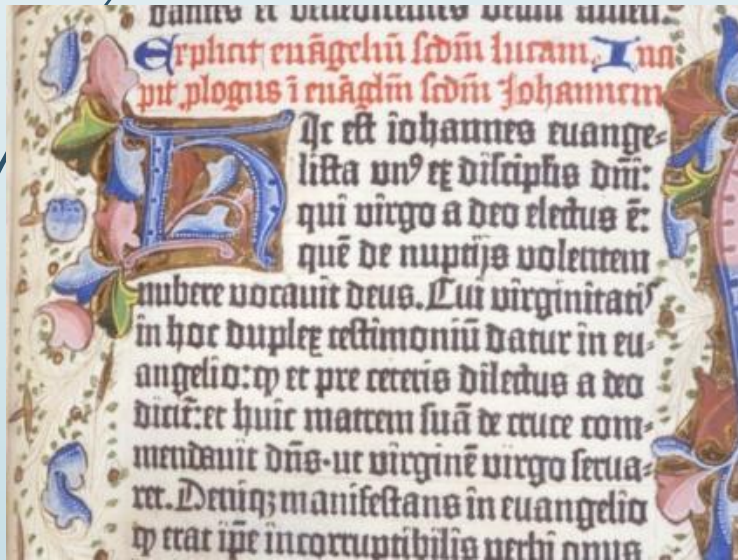 dantes et benedicentes deum amen.
Explicit euãgeliũ scdm̃ lucam. Inci
pit ꝓlogus ĩ euãgliũ scdm̃ Johannem
Hic est iohannes euange⸗
lista unꝰ ex discipĺis dñi:
qui virgo a deo electus ẽ:
quẽ de nuptijs volentem
nubere vocauit deus. Cui virginitatis
in hoc duplex testimoniũ datur in eu⸗
angelio: ꝙ et pre ceteris dilectus a deo
dicit̃: et huic matrem suã de cruce com⸗
mendauit dñs· ut virginẽ virgo serua⸗
ret. Deniqꝫ manifestans in euangelio
ꝙ erat ip̃e incorruptibilis verbi opus